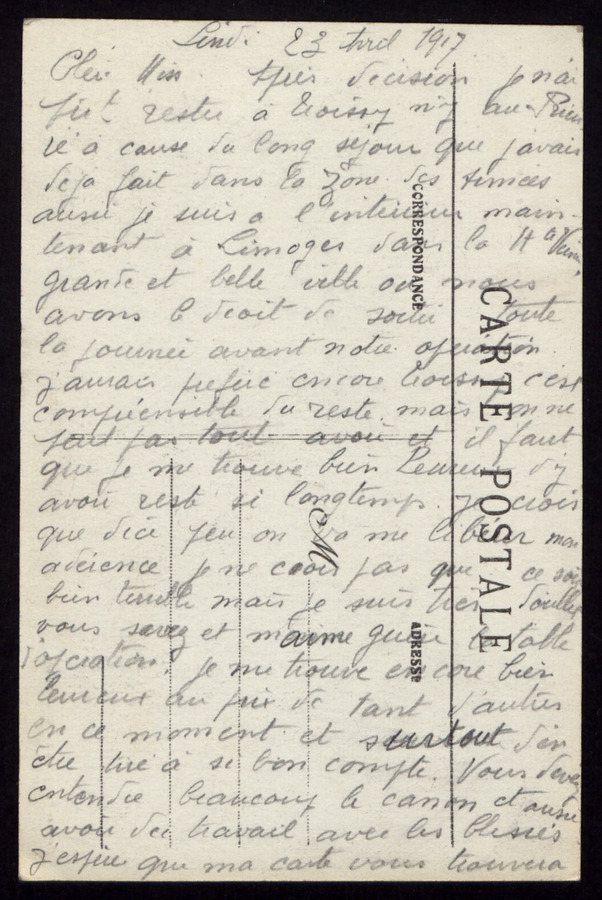 Lundi 23 Avril 1917
Cher Miss. Après décision je n'ai
put rester à Troissy ni y au
à cause du long séjour que j'avais
deja fait dans la zone des armées
aussi je suis a l'interieur main-
tenant à Limoges dans la Hte Vienne,
grande et belle ville ou nous
avons le droit de sortir toute
la journée avant notre operation.
J'aurais preferé encore Troissy, c'est
comprèensible du reste, mais on ne
peut pas tout avoir et il faut
que je me trouve bien heureux d'y
avoir resté si longtemp. Je crois
que dici peu on va me libèrer mon
je ne crois pas que ce soit
bien terrible mais je suis tres douillet
vous savez et m'aime guère la table
d'opération. je me trouve encore bien
heureux au prix de tant d'autres
en ce moment et surtout d'en
être tiré à si bon compte. Vous devez
entendre beaucoup le canon et aussi
avoir du travail avec les blessés
J'espère que ma carte vous trouvera
CARTE POSTALE
CORRESPONDANCE
M
ADRESSE